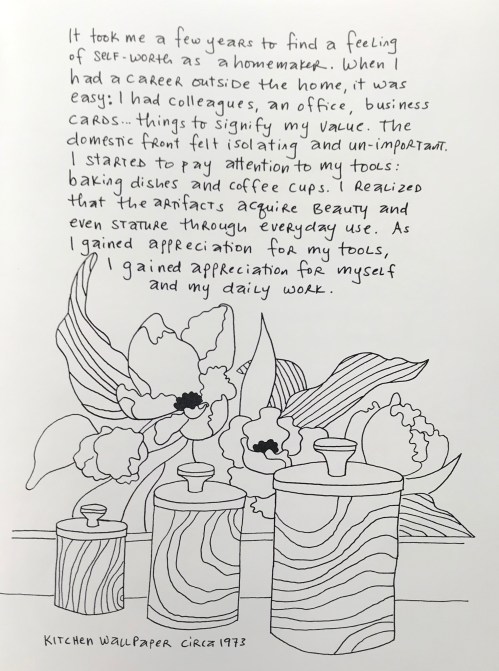 It took me a few years to find a feeling
of SELF-WORTH as a homemaker. When I
had a career outside the home, it was
easy: I had colleagues, an office, business
cards... things to signify my value. The
domestic front felt isolating and un-important.
I started to pay attention to my tools:
baking dishes and coffee cups. I realized
that the artifacts acquire beauty and
even stature through everyday use. As
I gained appreciation for my tools,
I gained appreciation for myself
and my daily work.
KITCHEN WALLPAPER CIRCA 1973